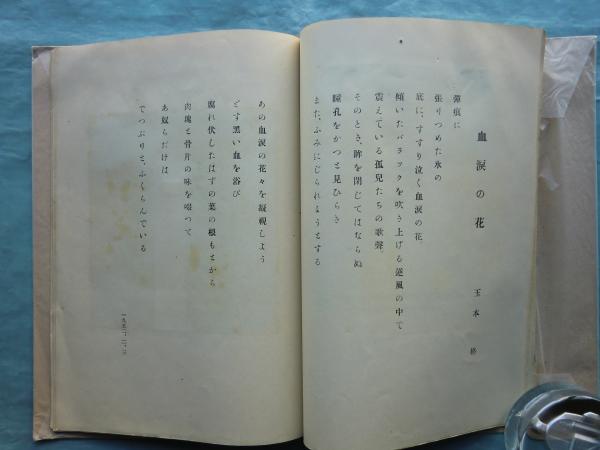 血涙の花
玉本
弾痕に
張りつめた氷の
底に、すすり泣く血涙の花、
傾いたバラックを吹き上げる逆風の中で
震えている孤児たちの歌聲、
そのとき、眸を閉じてはならぬ
瞳孔をかつと見ひらき
また、ふみにじられようとする
あの血涙の花々を凝視しよう
どす黒い血を浴び
腐れ伏したはずの葉の根もとから
肉塊と骨片の味を啜つて
あ奴らだけは
でつぷりと、ふくらんでいる